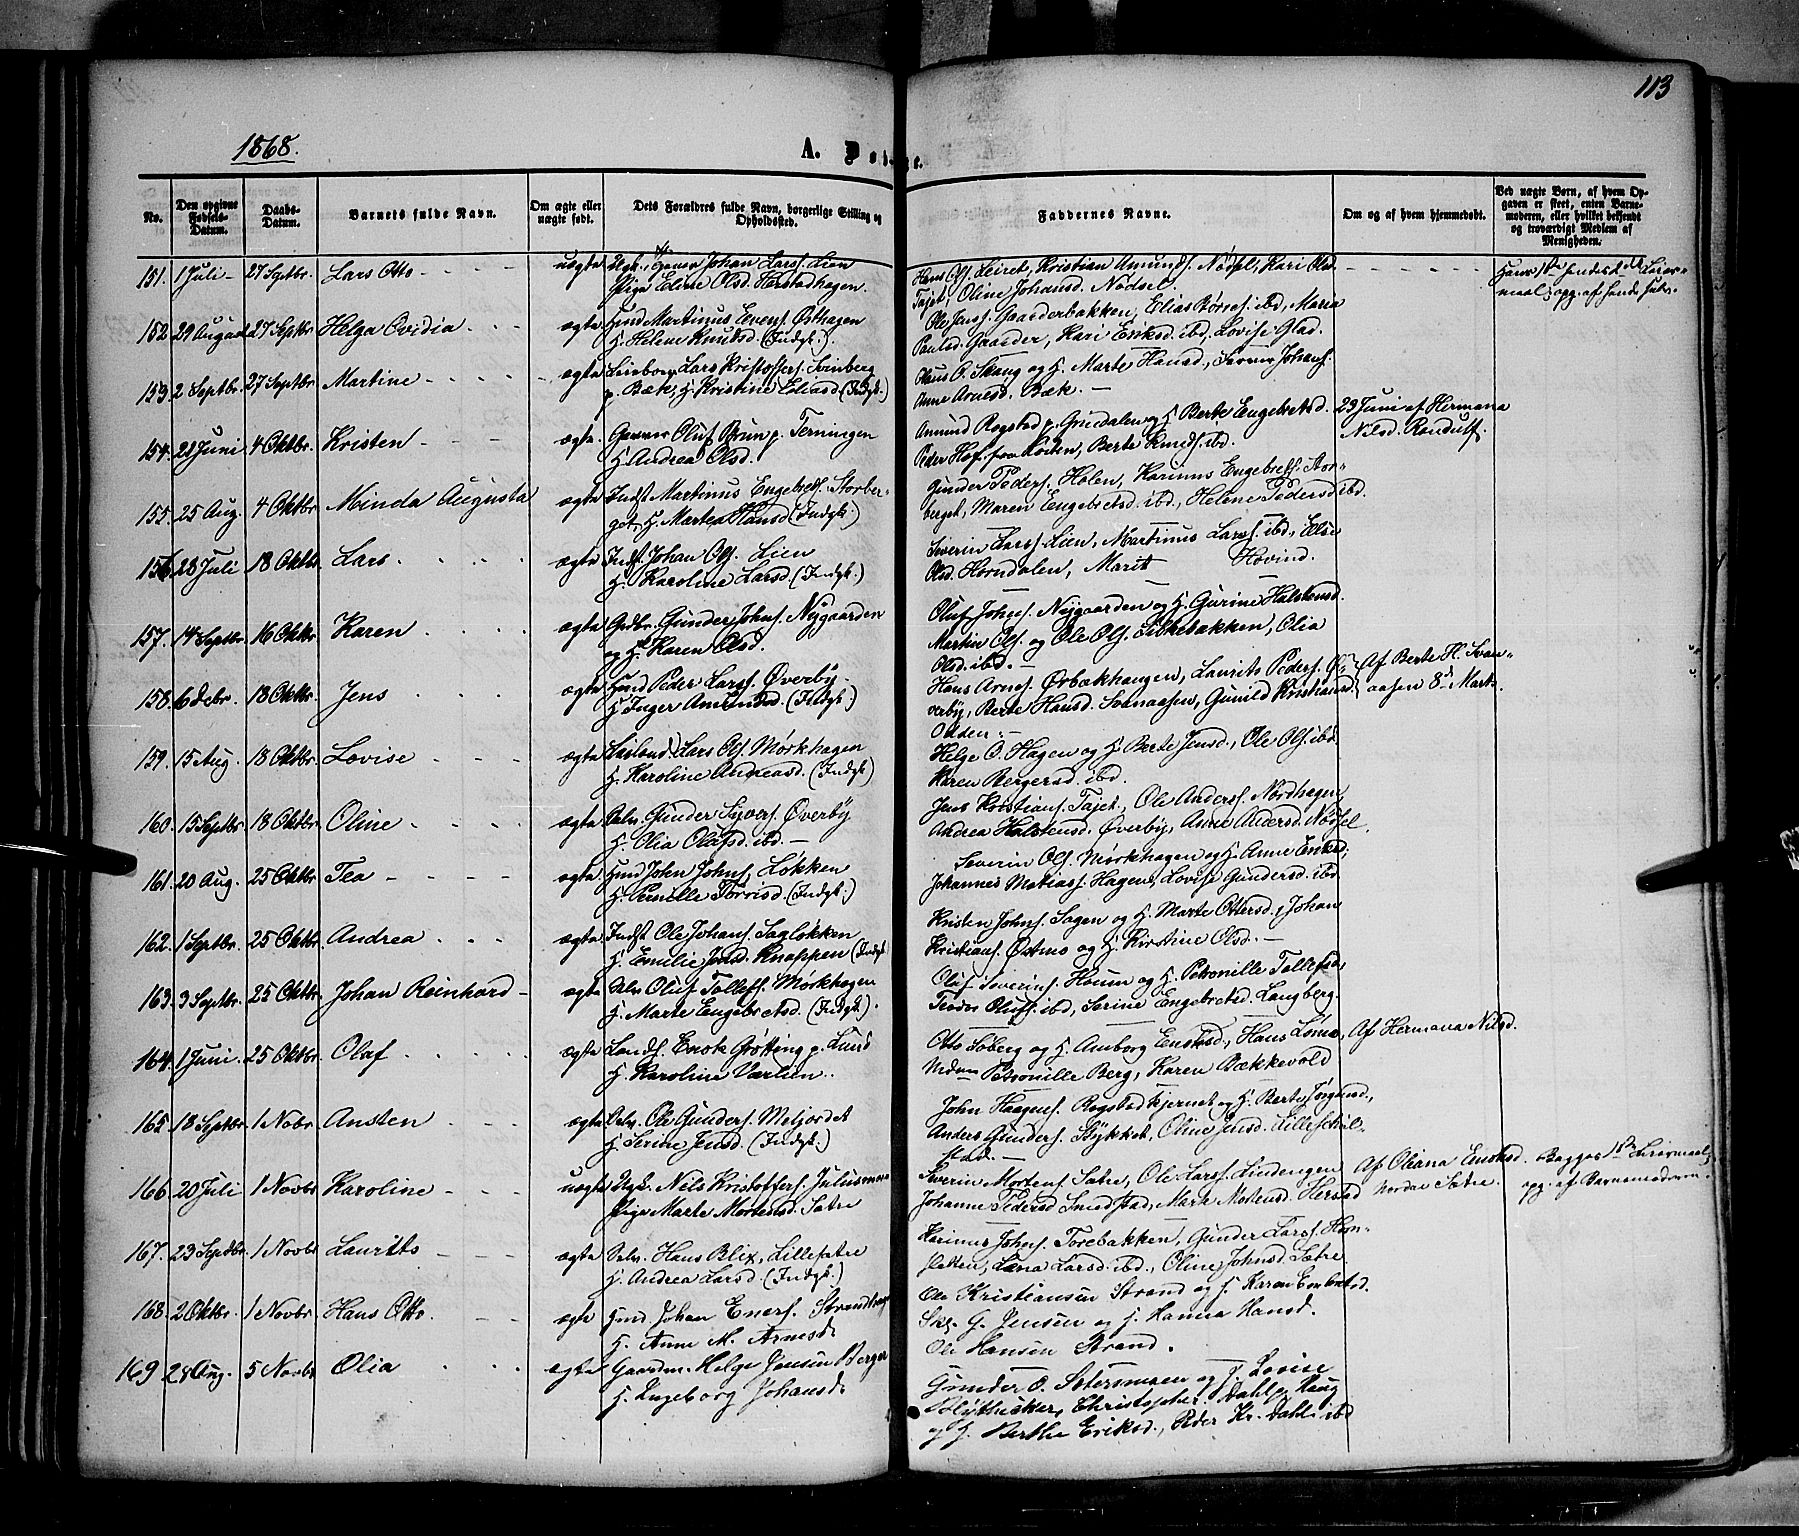 113
1868.
A. Døbte.
No.
Den opgivne Fødsels-Datum.
Daabs-Datum.
Barnets fulde Navn.
Om ægte eller uægte født.
Dets Forældres fulde Navn, borgerlige Stilling og Opholdssted.
Faddernes Navne.
Om og af hvem hjemmedøbt.
Ved uægte Børn, af hvem Opgaven er skeet, enten Barnemoderen, eller hvilket bekjendt og troværdigt Medlem af Menigheden.
151. 1 Juli 27 Septbr. Lars Otto uegte Ugk. Johan Larss. Lien
Pige Eline Olsd. Herstadhagen.
Hans Ols. Leiret, Kristian Amunds. Nödsel, Kari Olsd.
Tajet, Oline Johansd. Nödsel.
152. 29 August 27 Septbr. Helga Ovidia ægte Hmd Martinus Evens. Østhagen
H. Helene Knutsd. (Indgk.)
Ole Jenss. Gaarderbakken, Elias Børres. ibd, Maria
Paulsd. Gaarder, Kari Eriksd. ibd, Lovise Glad.
153. 2 Septbr. 27 Septbr. Martine ægte Lars Kristoffers. Svinberg
p. Bæk, H. Kristine Eliasd. (Indgk.)
Olaus O. Skaug og H. Marte Hansd., Johans.
Anne Arnesd. Bæk.
154. 28 Juni 4 Oktbr. Kristen ægte Garver Oluf Bruun p. Terningen
H. Andrea Olsd.
Amund Rogstad p. Grindalen og H. Berte Engebretsd.
Peder Hof fra Løiten, Berte Knuds. ibd.
29 Juni af Hermana
Nilsd. Ronduff.
155. 25 Aug. 4 Oktbr. Minda Augusta ægte Indst Martinus Engebrets. Storber-
get, H. Martea Hansd. (Indgk.)
Gunder Peders. Holen, Karinus Engebrets. Stor-
berget, Maren Engebretsd. ibd., Helene Pedersd ibd.
156. 28 Juli 18 Oktbr. Lars ægte Indst Johan Ols. Lien
H. Karoline Larsd. (Indgk.)
Severin Larss. Lien, Martinus Larss. ibd., Else
Olsd. Horndalen, Marit Hovind.
157. 14 Septbr. 16 Oktbr. Karen ægte Grdbr. Gunder Johns. Nygaarden
og H. Karen Olsd.
Oluf Johns. Nygaarden og H. Gurine Halstensd.
Martin Ols. og Ole Ols. Silkebakken, Olia
Olsd. ibd.
158. 6 Febr. 18 Oktbr. Jens ægte Hmd Peder Larss. Øverby
H. Inger Amundsd. (Indgk.)
Hans Arnes. Ørbækhaugen, Laurits Peders. Ø-
verby, Berte Hansd. Svenaasen, Gunild Kristiansd.
Odden.
Af Berte H. Svan-
aasen 8de Mart.
159. 15 Aug. 18 Oktbr. Lovise ægte Lars Ols. Mørkhagen
H. Karoline Andreasd. (Indgk.)
Helge O. Hagen og H. Berte Jensd., Ole Ols. ibd.
Karen Bergersd. ibd.
160. 15 Septbr. 18 Oktbr. Oline ægte Selv. Gunder Syvers. Øverby
H. Olia Olafsd. ibd.
Jens Kristians. Tajet, Ole Anders. Nordhagen,
Andrea Halstensd. Øverby, Anne Andersd. Nödsel.
161. 20 Aug. 25 Oktbr. Tea ægte Hmd John Johns. Løkken
H. Pernille Torrisd. (Indgk.)
Severin Ols. Mørkhagen og H. Anne Eriksd,
Johannes Matiass. Hagen, Lovise Gundersd. ibd
162. 1 Septbr. 25 Oktbr. Andrea ægte Indst Ole Johans. Sagløkken
H. Emilie Jensd. Knappen (Indgk.
Kristen Johns. Sagen og H. Marte Ottersd., Johan
Kristians. Østmo og H. Kirstine Olsd.
163. 3 Septbr. 25 Oktbr. Johan Reinhard ægte Selv. Oluf Tollefs. Mørkhagen
H. Marte Engebretsd. (Indgk.).
Olaf Severins. Houm og H. Petronille Tollefsd.
Teodor Olufs. ibd, Serine Engebretsd. Langberg.
164. 1 Juni. 25 Oktbr. Olaf ægte Lands. Enok Grötting p. Lund
H. Karoline Værlien.
Otto Soberg og H. Amborg Enoksd., Hans
Petronille Berg, Karen Bækkevold
Af Hermana Nilsd.
165. 18 Septbr. 1 Nobr. Ansten ægte Selv. Ole Gunders. Meljordet
H. Serine Jensd. (Indgk.)
John Haagens. Rogstadkjernet og H. Berte Jørgensd.,
Anders Gunders. Bykket, Oline Jensd. Lilleskal-
stad.
166. 20 Juli 1 Novbr. Karoline uegte Ugk. Nils Kristoffers. Juliusmoen
Pige Marte Mortensd. Sætre
Severin Mortens. Sætre, Ole Larss. Lindengen
Johanne Pedersd Smedstad, Marte Mortensd. Herstad
Af Oliana Enoksd.
nordre Sætre.
Begges 1ste Leiermaal,
opg. af Barnemoderen.
167. 23 Septbr. 1 Novbr Laurits ægte Selv. Hans Blix, Lillesætre
H. Andrea Larsd. (Indgk.)
Karinus Johns. Torebakken, Gunder Larss. Horn-
sletten, Lena Larsd. ibd., Oline Johnsd. Sætre
168. 2 Oktbr. 1 Novbr. Hans Otto ægte Hmd Johan Eners. Strandhage
H. Anne M. Arnesd.
Ole Kristiansen Strand og H. Karen Embretsd.
G. Jensen og H. Hanna Hansd.
Ole Hansen Strand.
169 28 Aug. 5 Novbr Olia ægte Gaardm. Helge Jensen Berger
H. Ingeborg Johansd.
Gunder O. Sætersmoen og H. Lovise
Christopher Dahl p. Haug
og H. Berthe Eriksd., Peder Kr. Dahl ibd